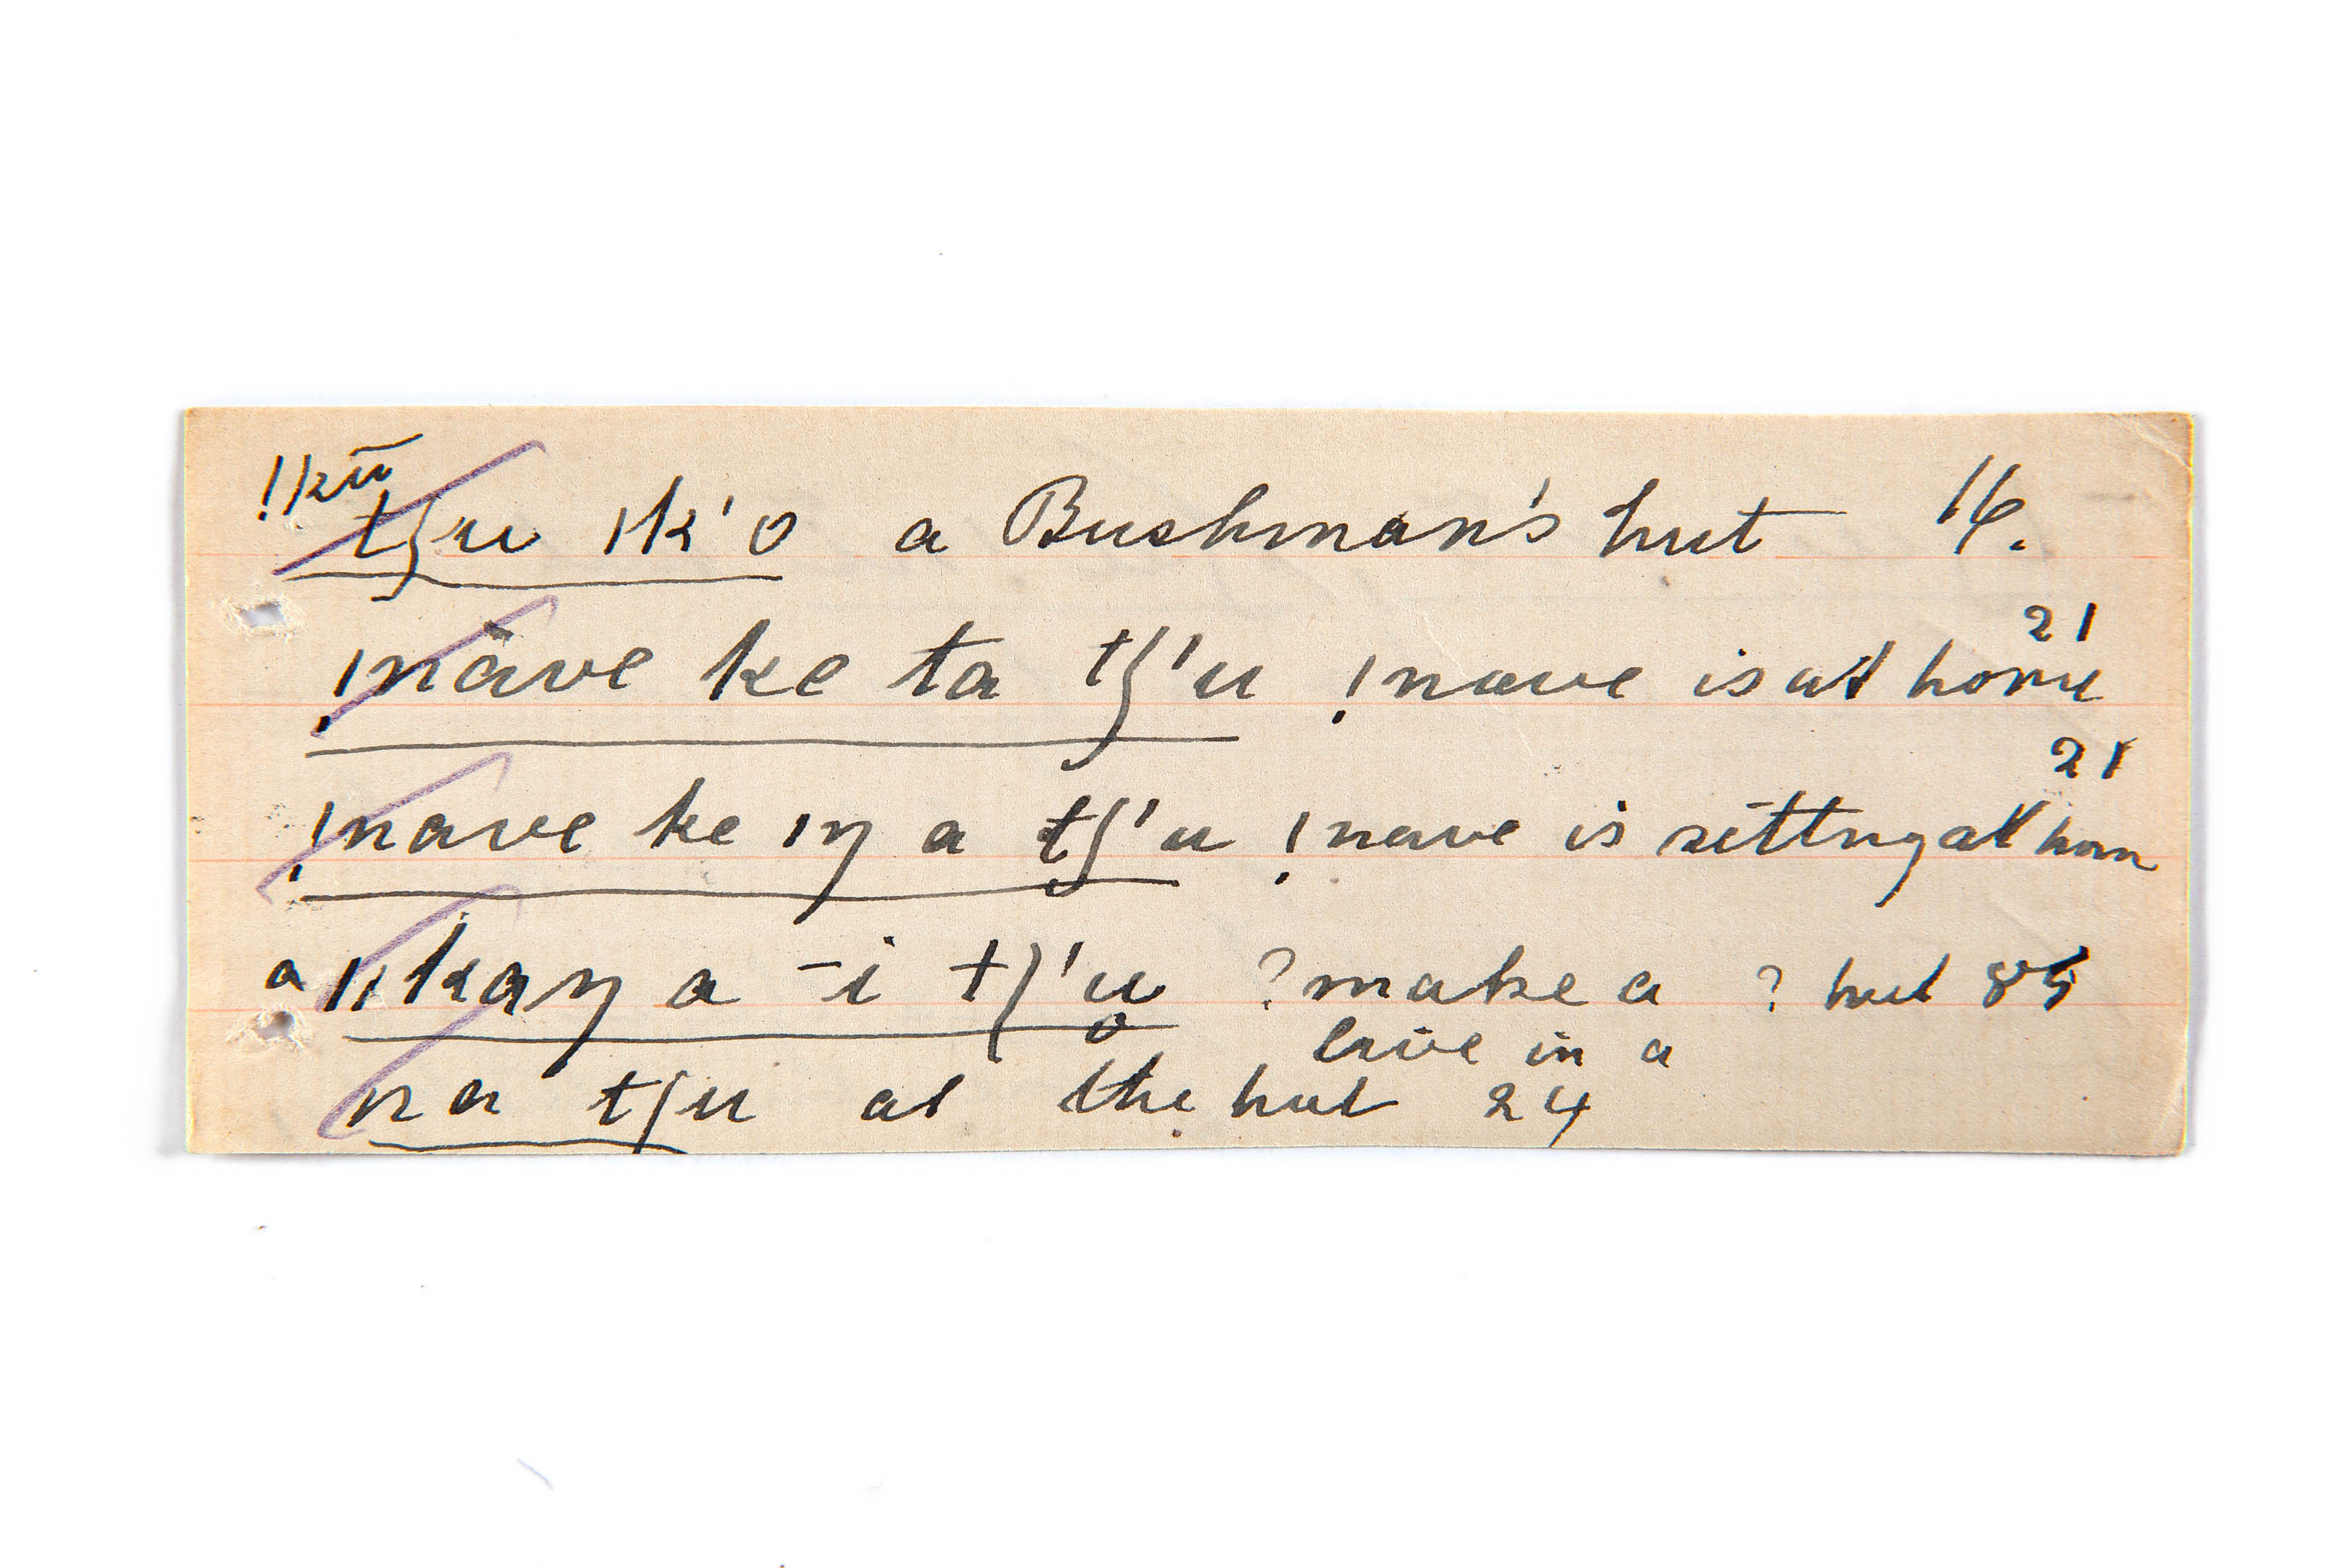 !kū
tʃu ǀk'o a Bushman's hut 16.
21
!nave ke ta tʃ'u !nave is at home
21
!nave ke ǀŋ a tʃ'u !nave is sitting at hom
a ǁkaŋ a -i tʃ'u̥ ? make a ? hut 85
live in a
na tʃu at the hut 24